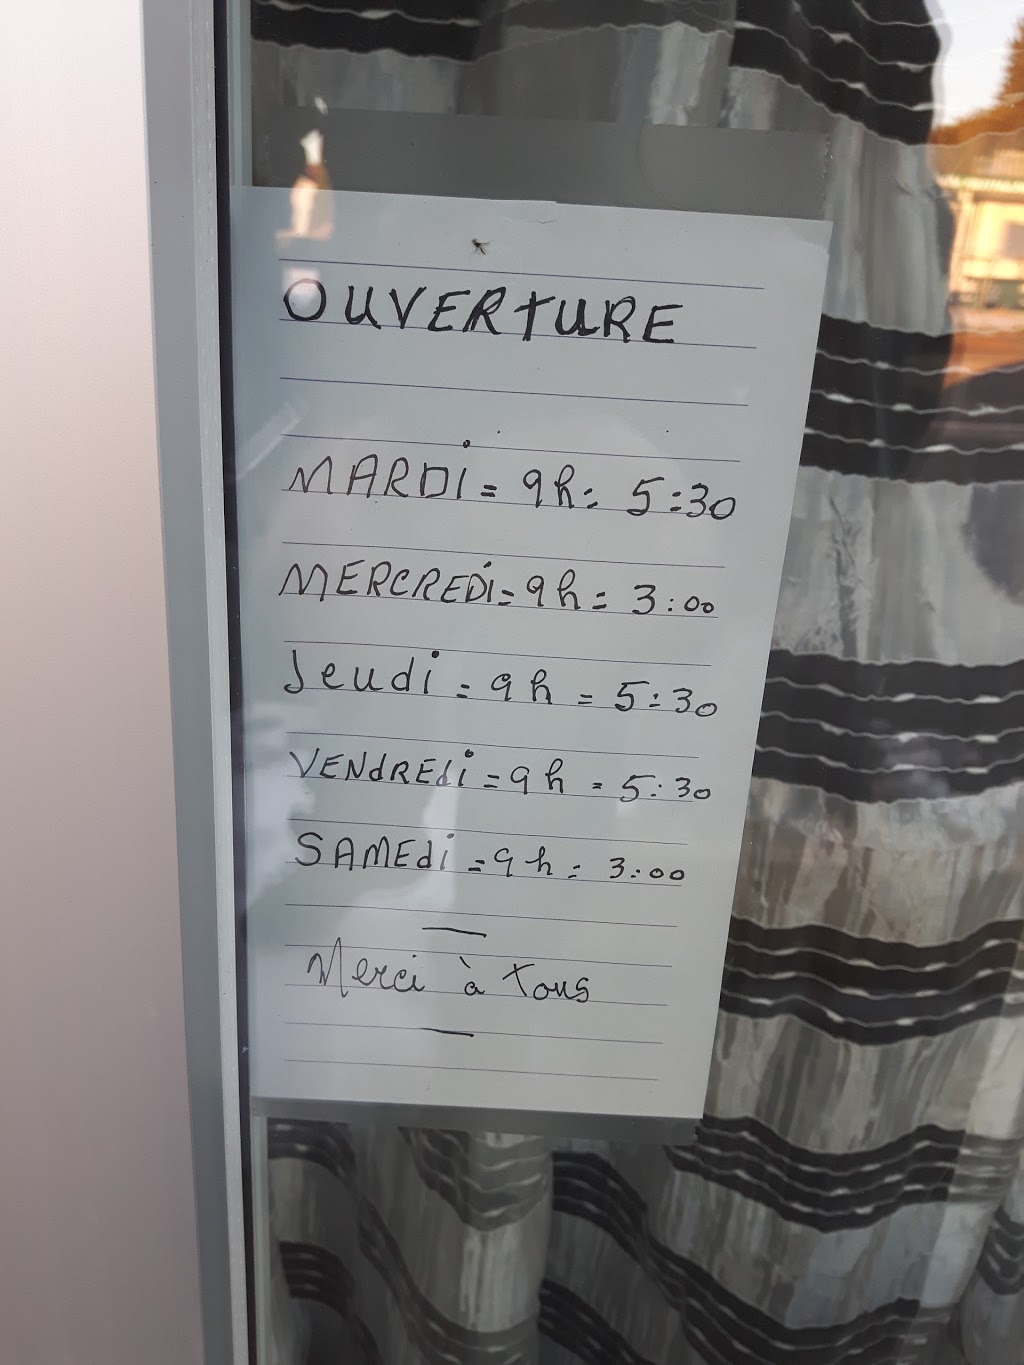 OUVERTURE
MARDI = 9h = 5:30
MERCREDI = 9h = 3:00
Jeudi = 9h = 5:30
VENdREdi = 9h = 5:30
SAMEdi = 9h = 3:00
Merci à Tous